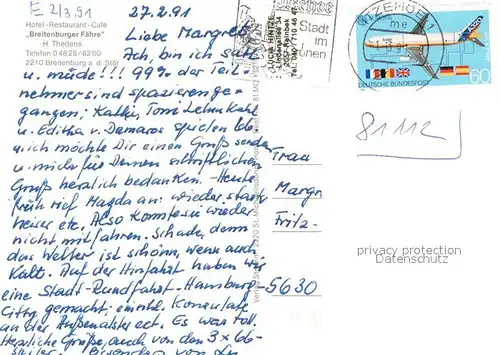 E 2/3.91
Hotel-Restaurant-Café
"Breitenburger Fähre"
H. Thedens
Telefon 0 48 28/62 00
2210 Breitenburg a. d. Stör
27.2.91
Liebe Margret
Ach, bin ich satt
u. müde!!! 99% der Teil-
nehmer sind spazierenge-
gangen; Käthi, Toni
u. Editha v. spielen 66
u. ich möchte Dir einen Gruß senden
u. mich für Deinen schriftlichen
Gruß herzlich bedanken. - Heute
früh rief Magda an: wieder stark
heiser etc. Also konnte sie wieder
nicht mitfahren. Schade, denn
das Wetter ist schön, wenn auch
kalt. Auf der Hinfahrt haben wir
eine Stadt-Rundfahrt-Hamburg-
City gemacht; einschl. Konsulate
an der Außenalster ect. Es war toll.
Herzliche Grüße, auch von den 3 x 66-
Stadt
im
Grünen
ITZEHOE 1
DEUTSCHE BUNDESPOST
60
81112
Frau
Margr
Fritz-
5630
privacy protection
Datenschutz